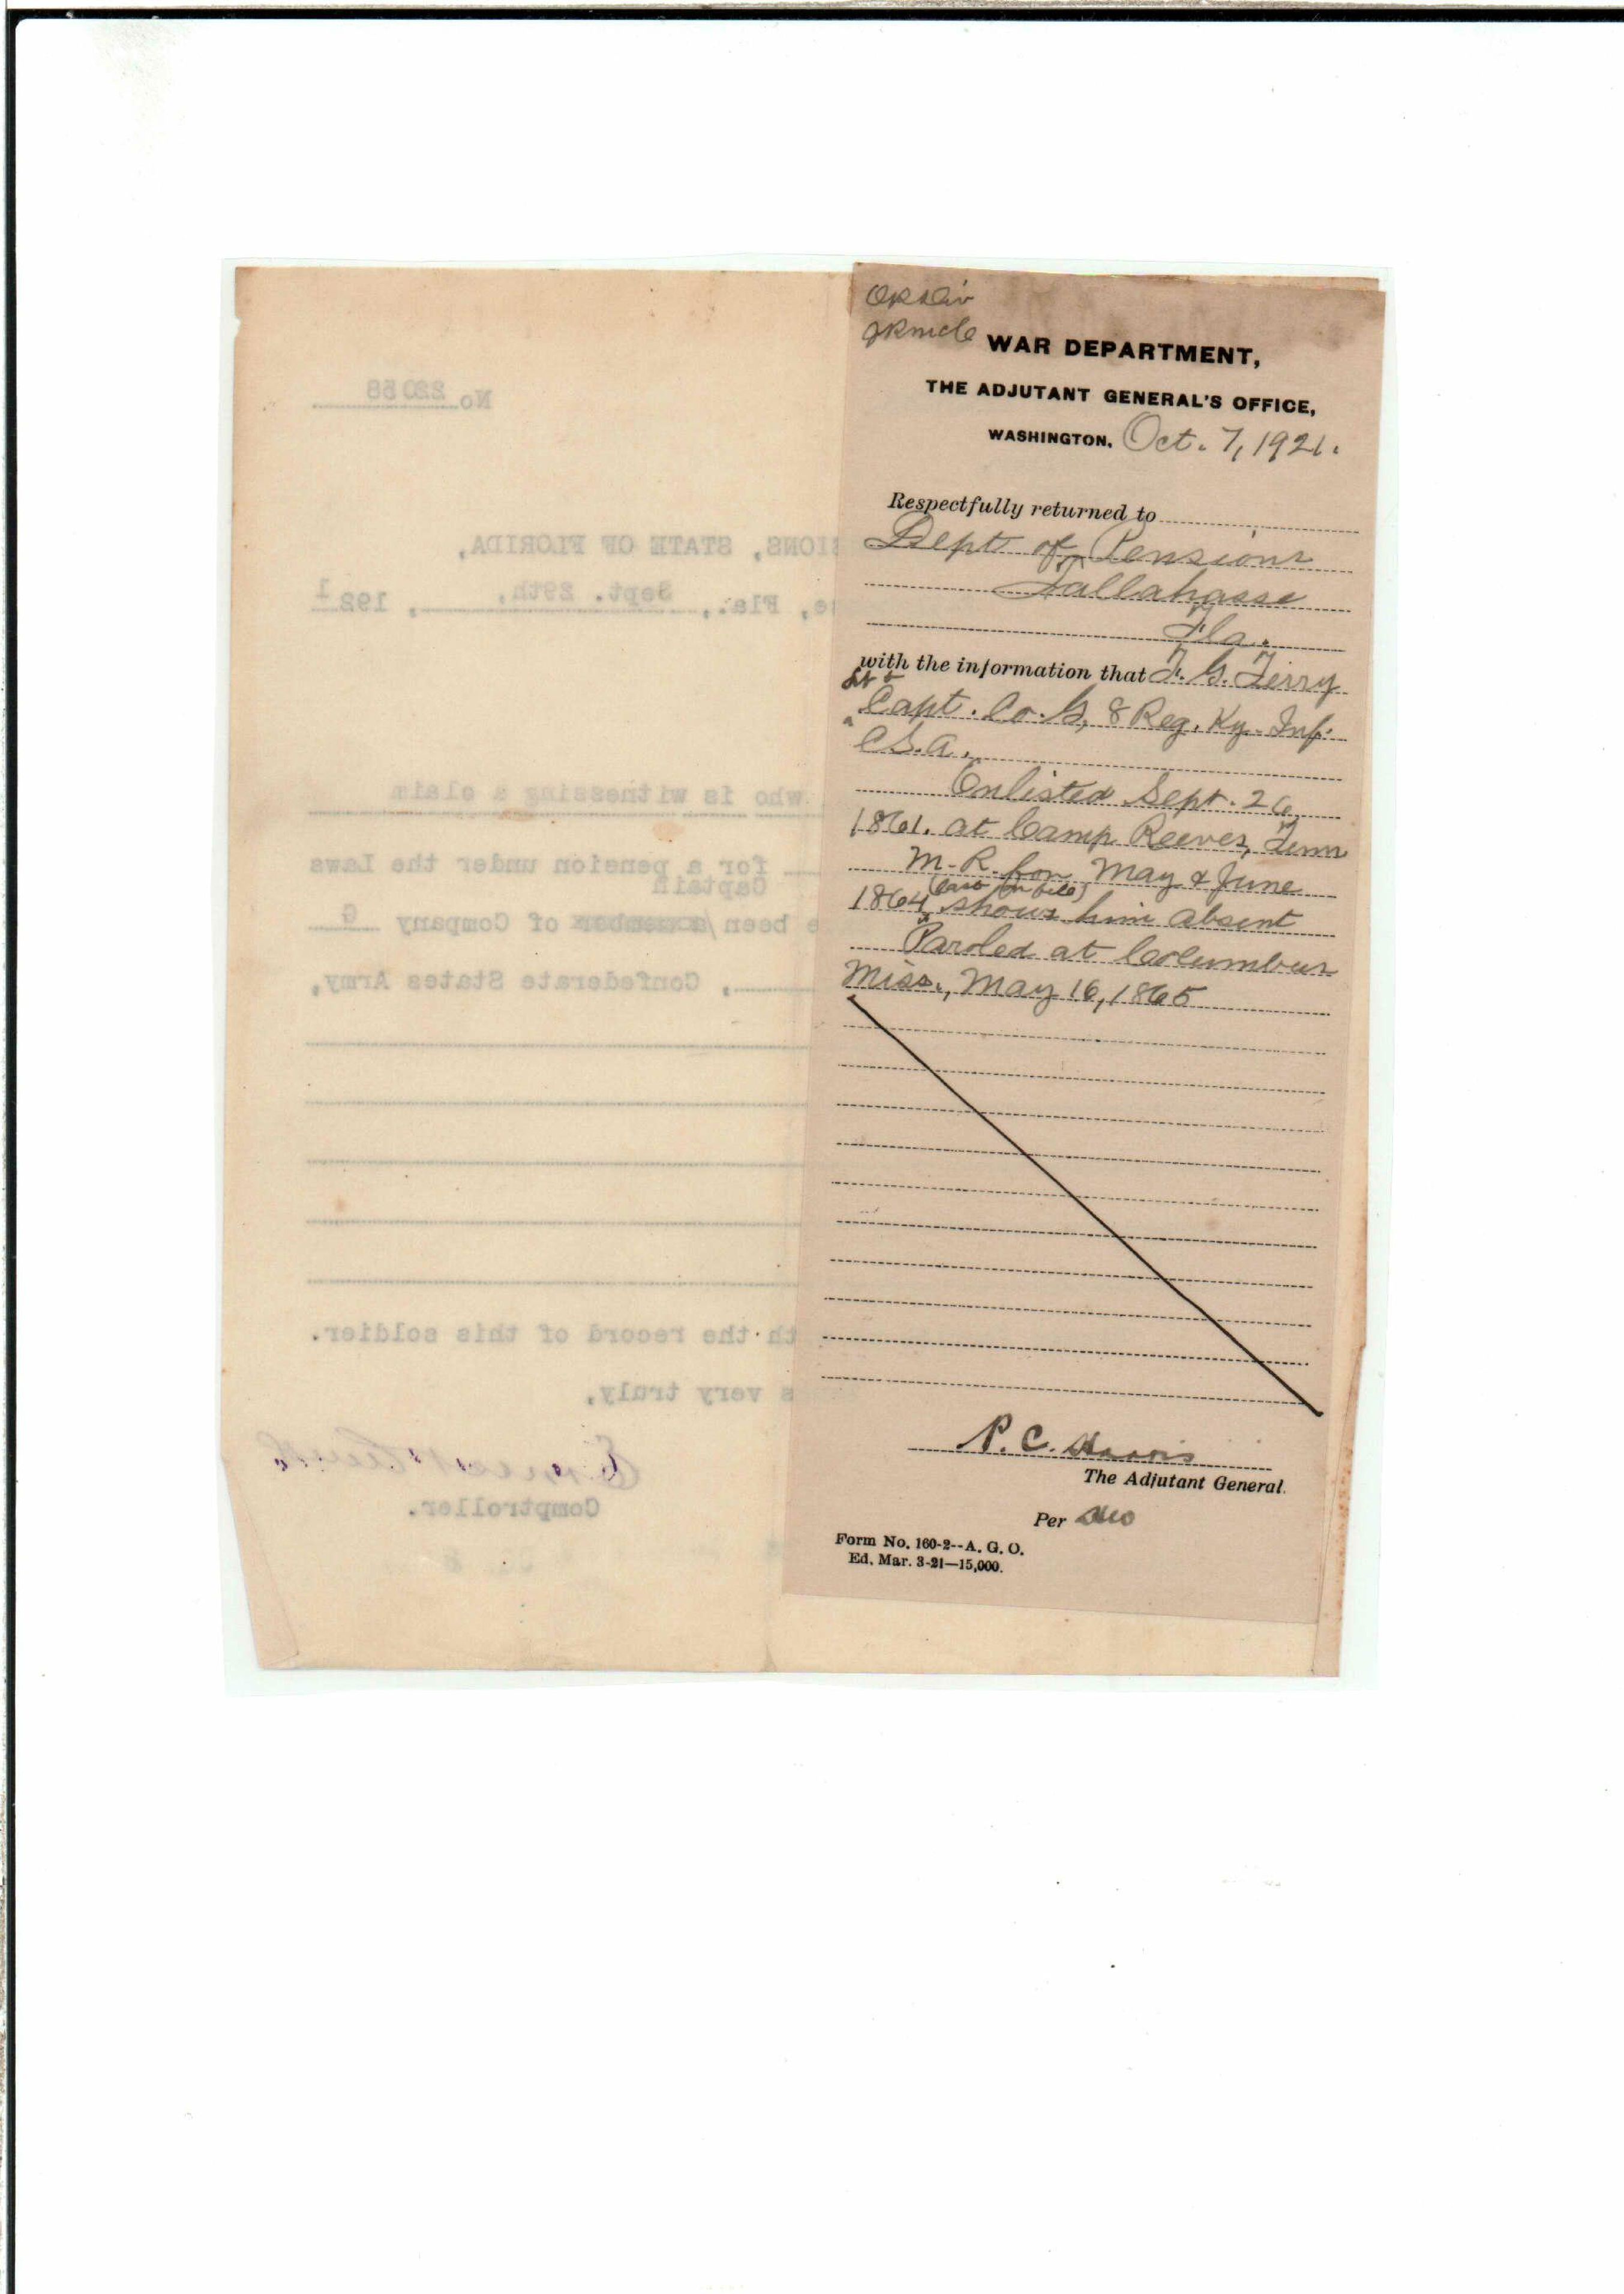 WAR DEPARTMENT,
THE ADJUTANT GENERAL'S OFFICE,
WASHINGTON, Oct. 7, 1921.
Respectfully returned to
Dept of Pensions
Tallahasse
Fla.
with the information that F. G. Terry
Capt. Co. G, 8 Reg. Ky. Inf.
C.S.A.
Enlisted Sept. 26,
1861. at Camp Reeves, Tenn
M-R for May & June
(last on file)
1864, shows him absent
Paroled at Columbus
Miss., May 16, 1865
P. C. Harris
The Adjutant General.
Per
Form No. 160-2--A. G. O.
Ed. Mar. 3-21—15,000.
No 22058
IONS, STATE OF FLORIDA,
e, Fla., Sept. 29th, , 192 1
who is witnessing a claim
for a pension under the Laws
Captain
e been a member of Company G
, Confederate States Army,
th the record of this soldier.
s very truly,
Comptroller.